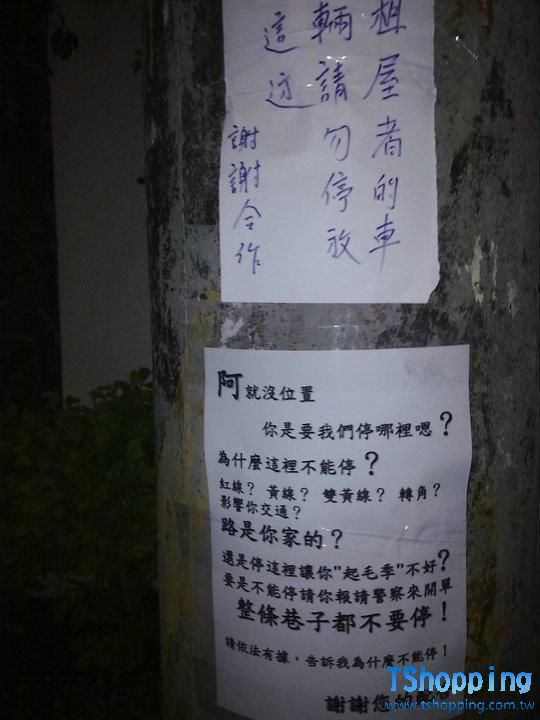 租屋者的車
輛請勿停放
這边
謝謝合作
阿就沒位置
你是要我們停哪裡嗯？
為什麼這裡不能停？
紅線？ 黃線？ 雙黃線？ 轉角？
影響你交通？
路是你家的？
還是停這裡讓你"起毛季"不好？
要是不能停請你報請警察來開單
整條巷子都不要停！
請依法有據，告訴我為什麼不能停！
謝謝您的
TShopping
www.tshopping.com.tw